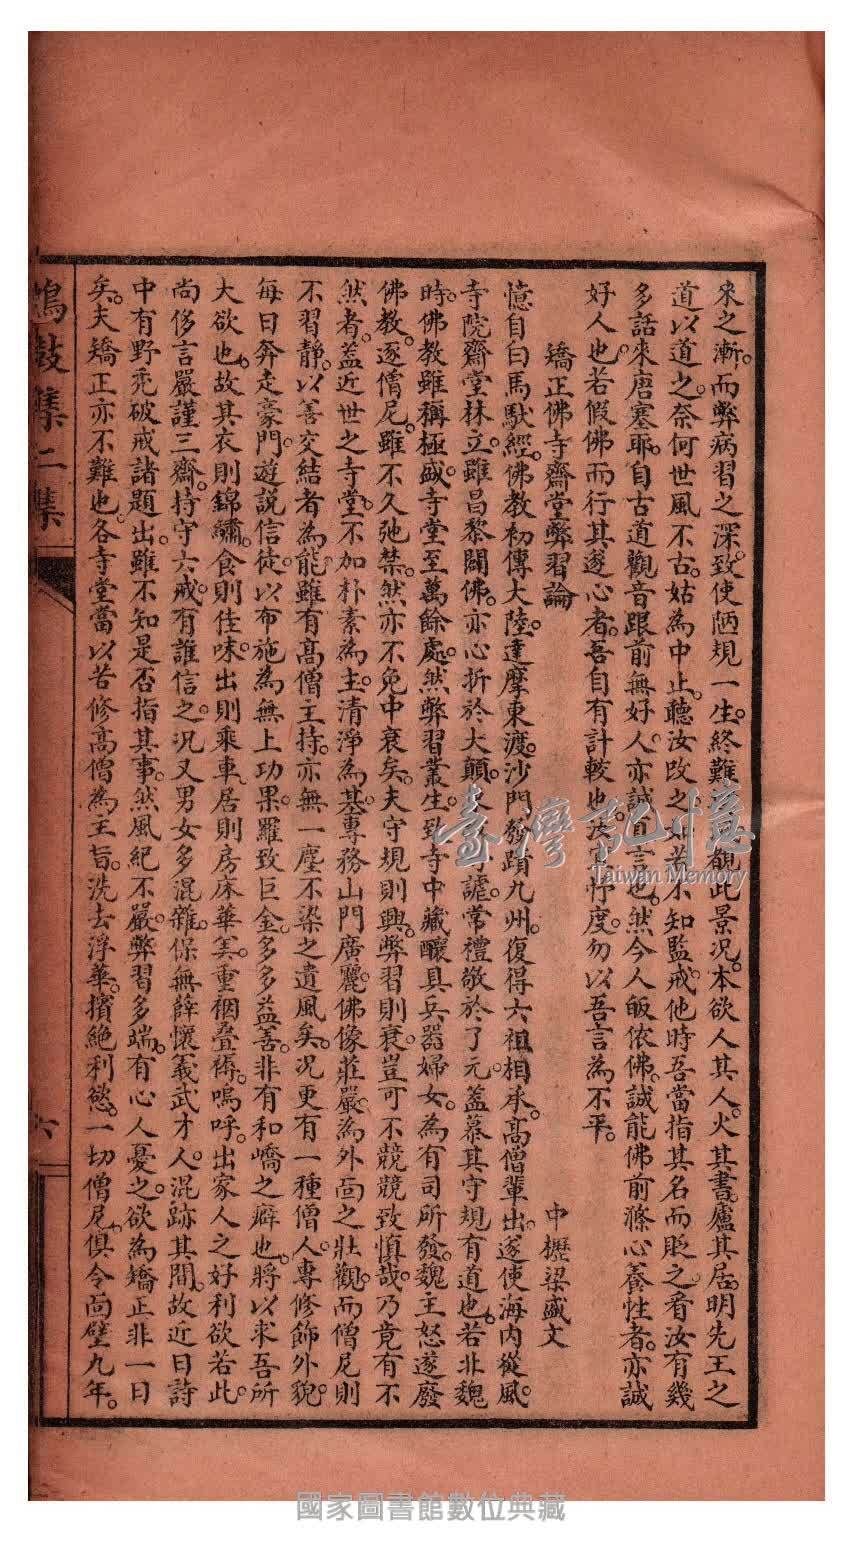 來之漸。而弊病習之深。致使陋規一生。終難 觀此景况。本欲人其人。火其書。廬其居。明先王之
道以道之。奈何世風不古。姑為中止。聽汝改之。如若不知監戒。他時吾當指其名而貶之。看汝有幾
多話來唐塞耶。自古道觀音跟前無好人。亦誠眞言也。然今人皈依佛。誠能佛前滌心養性者。亦誠
好人也。若假佛而行其遂心者。吾自有計較也。 忖度。勿以吾言為不平。
矯正佛寺齋堂弊習論
中櫪梁盛文
憶自白馬馱經。佛教初傳大陸。達摩東渡。沙門發蹟九州。復得六祖相承。高僧輩出。遂使海内從風。
寺院齋堂林立。雖昌黎闢佛。亦心折於大顛。 謔。常禮敬於了元。盖慕其守規有道也。若非魏
時。佛教雖稱極盛。寺堂至萬餘處。然弊習叢生。致寺中藏釀具兵器婦女。為有司所發。魏主怒。遂廢
佛教。逐僧尼。雖不久弛禁。然亦不免中衰矣。夫守規則興。弊習則衰。豈可不競競致慎哉。乃竟有不
然者。盖近世之寺堂。不加朴素為主。清淨為基。專務山門廣麗。佛像莊嚴。為外面之壯觀。而僧尼則
不習靜。以善交結者為能。雖有高僧主持。亦無一塵不染之遺風矣。况更有一種僧人。專修飾外貌。
每日奔走豪門。遊説信徒。以布施為無上功果。羅致巨金。多多益善。非有和嶠之癖也。將以求吾所
大欲也。故其衣則錦繡。食則佳味。出則乘車。居則房床華美。重裀叠褥。嗚呼。出家人之好利欲若此。
尚侈言嚴謹三齋。持守六戒。有誰信之。况又男女多混雜。保無薛懷義武才人。混跡其間。故近日詩
中有野禿破戒諸題出。雖不知是否指其事。然風紀不嚴。弊習多端。有心人憂之。欲為矯正非一日
矣。夫矯正亦不難也。各寺堂當以苦修高僧為主旨。洗去浮華。擯絶利慾。一切僧尼。俱令面壁九年。
鳴鼓集二集
六
臺灣記憶
Taiwan Memory
國家圖書館數位典藏